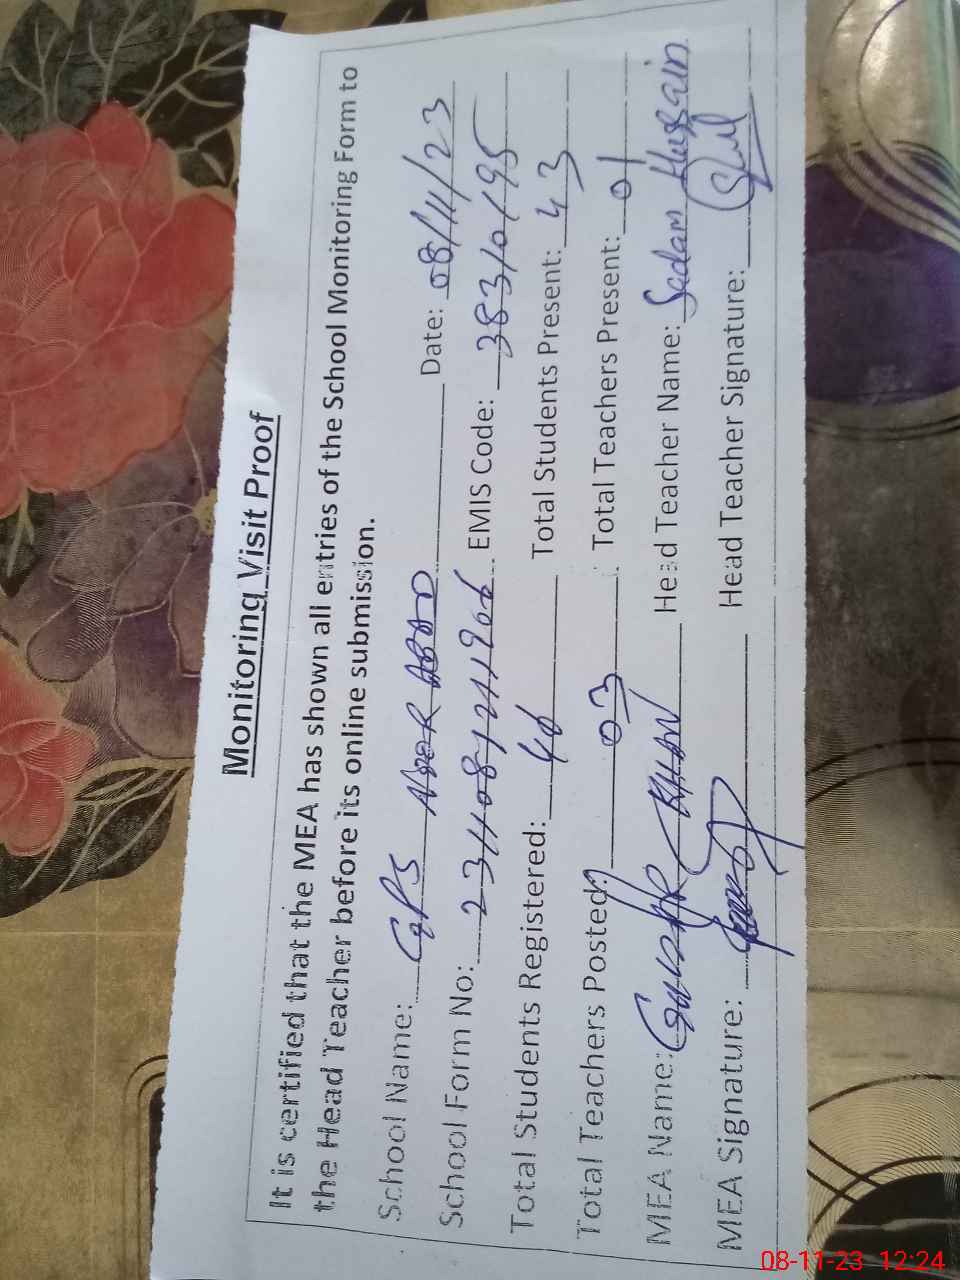 Monitoring Visit Proof
It is certified that the MEA has shown all entries of the School Monitoring Form to
the Head Teacher before its online submission.
School Name: GPS ABAD Date: 08/11/23
School Form No: EMIS Code: 38310195
Total Students Registered: 46 Total Students Present: 43
Total Teachers Posted: 03 Total Teachers Present: 01
MEA Name: KHAN Head Teacher Name: Sadam Hussain
MEA Signature: Head Teacher Signature:
08-11-23 12:24